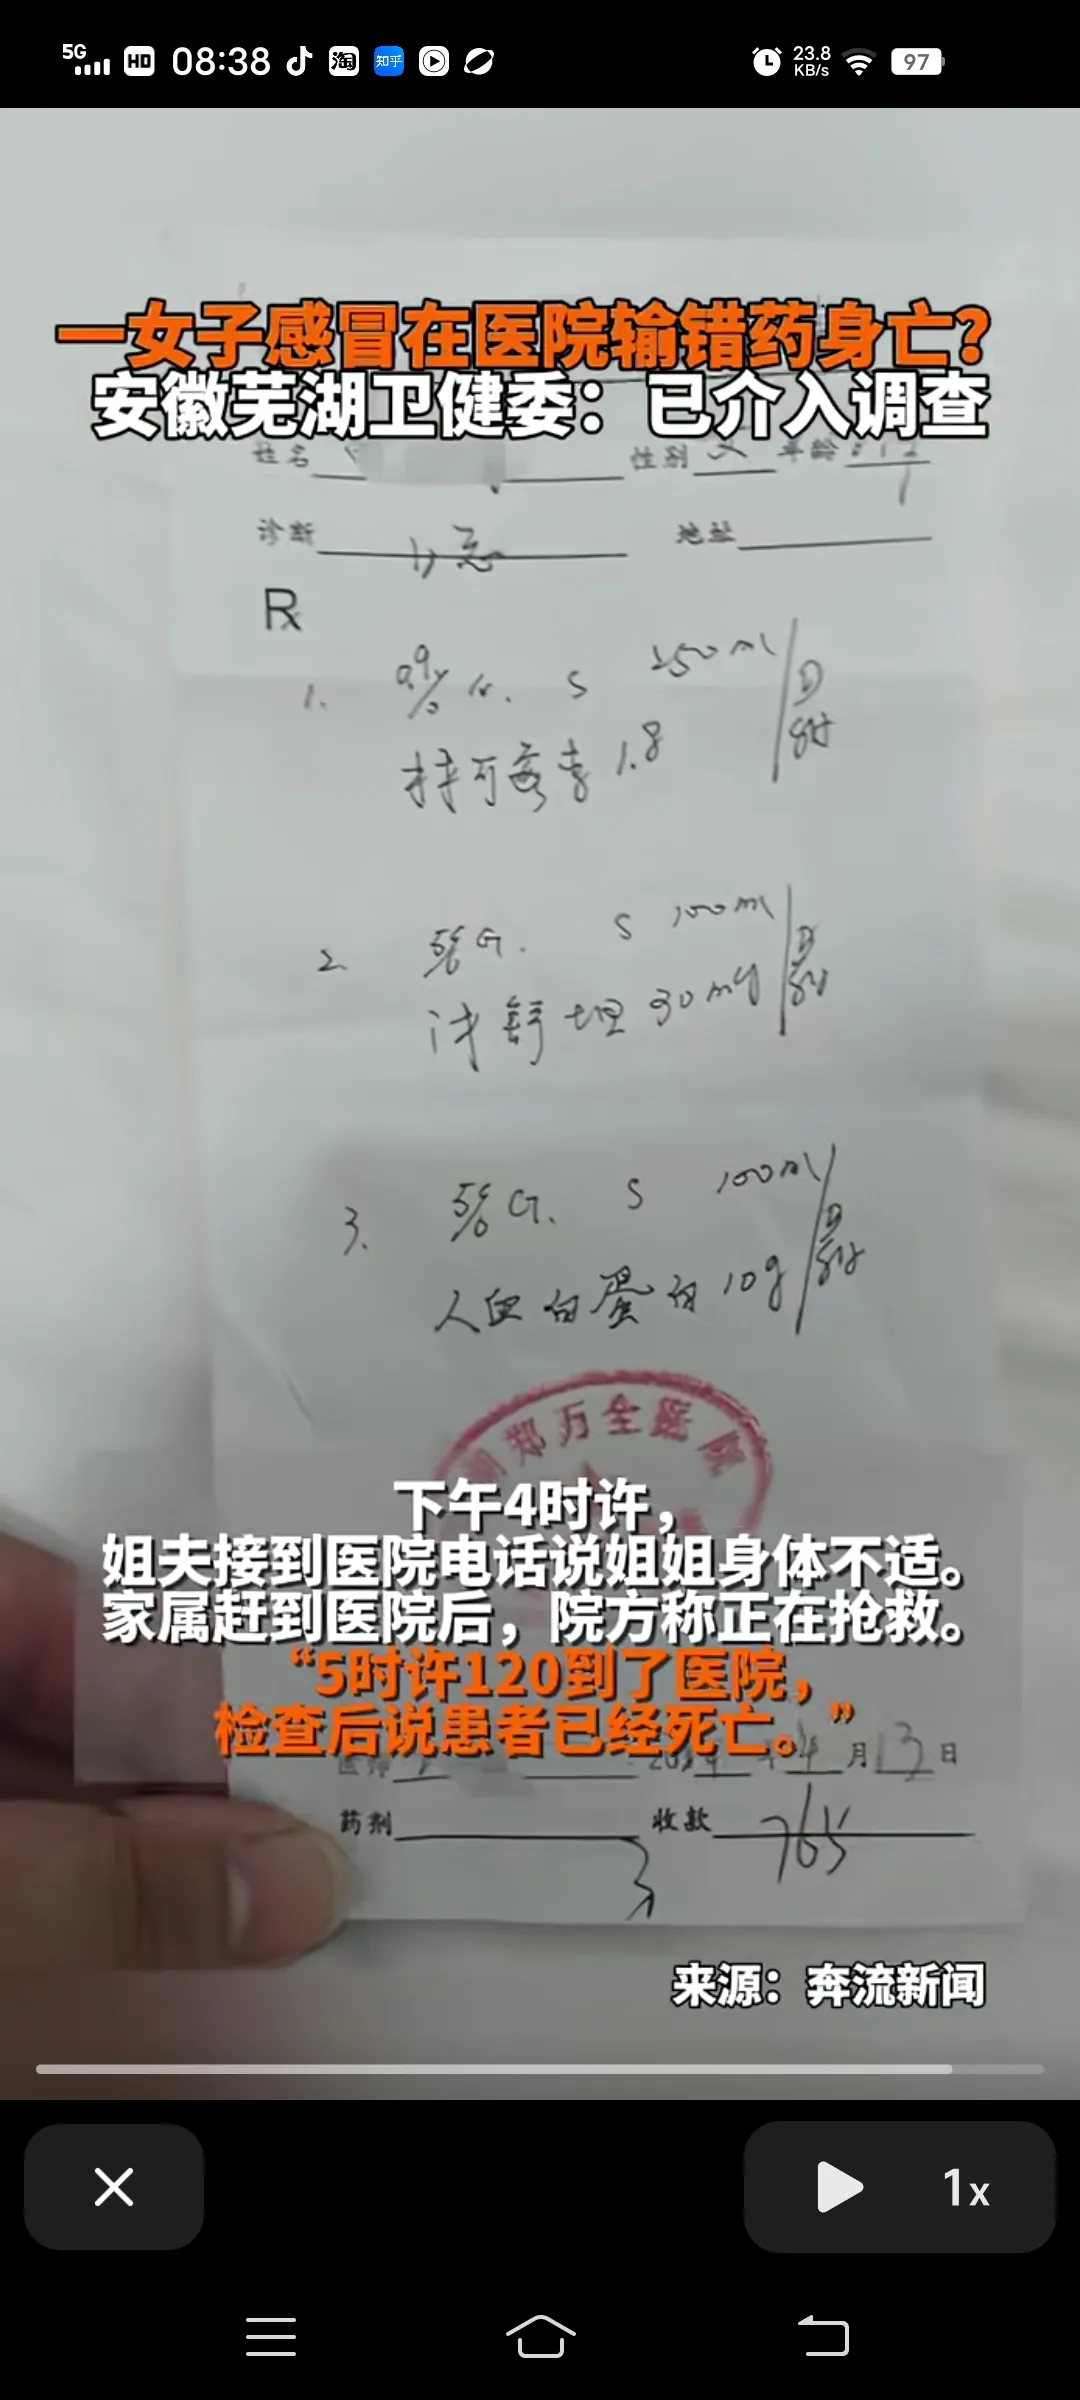 5G HD 08:38 知乎 淘 23.8 KB/s 97
一女子感冒在医院输错药身亡?
安徽芜湖卫健委：已介入调查
姓名 性别 女 年龄
诊断 地址
Rx
1. 0.9% N.S 250ml
1.8
2. 5% G.S 100ml
沐舒坦 30mg
3. 5% G.S 100ml
人血白蛋白 10g
郑万全医院
下午4时许，
姐夫接到医院电话说姐姐身体不适。
家属赶到医院后，院方称正在抢救。
“5时许120到了医院，
检查后说患者已经死亡。”
4月13日
药剂 收款 765
来源：奔流新闻
1x